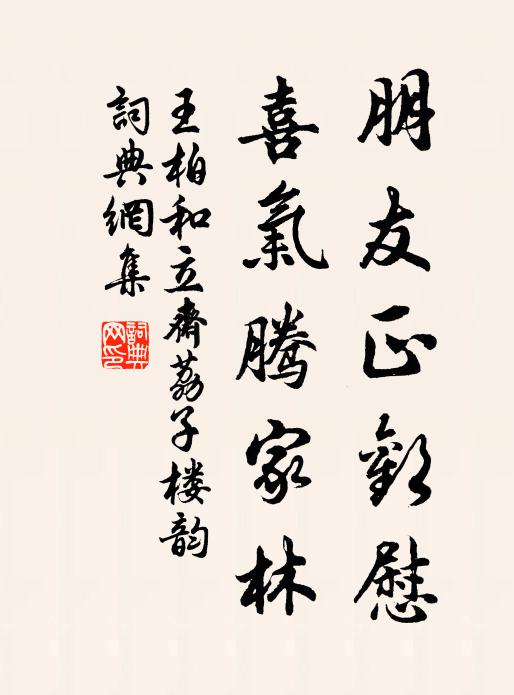 朋友正歡慰
喜氣騰家林
王柏和立齋荔子楼韵
詞典網集
詞典
网印